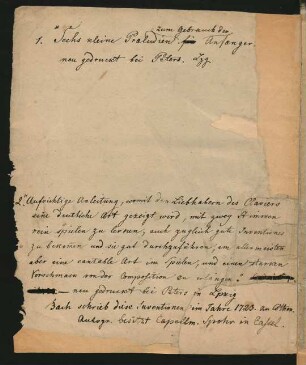 zum Gebrauch der
1. Sechs kleine Praeludien für Anfänger.
neu gedruckt bei Peters. Lpz.
2. "Aufrichtige Anleitung, womit den Liebhabern des Claviers
eine deutliche Art gezeigt wird, mit zwey Stimmen
rein spielen zu lernen, auch zugleich gute Inventiones
zu bekommen und sie gut durchzuführen, am allermeisten
aber eine cantable Art im Spielen, und einen starken
Vorschmack von der Composition zu erlangen."
neu gedruckt bei Peters in Lpzg
Bach schrieb diese Inventionen im Jahre 1723. an
Autogr. besitzt Capellm. Spohr in Cassel.